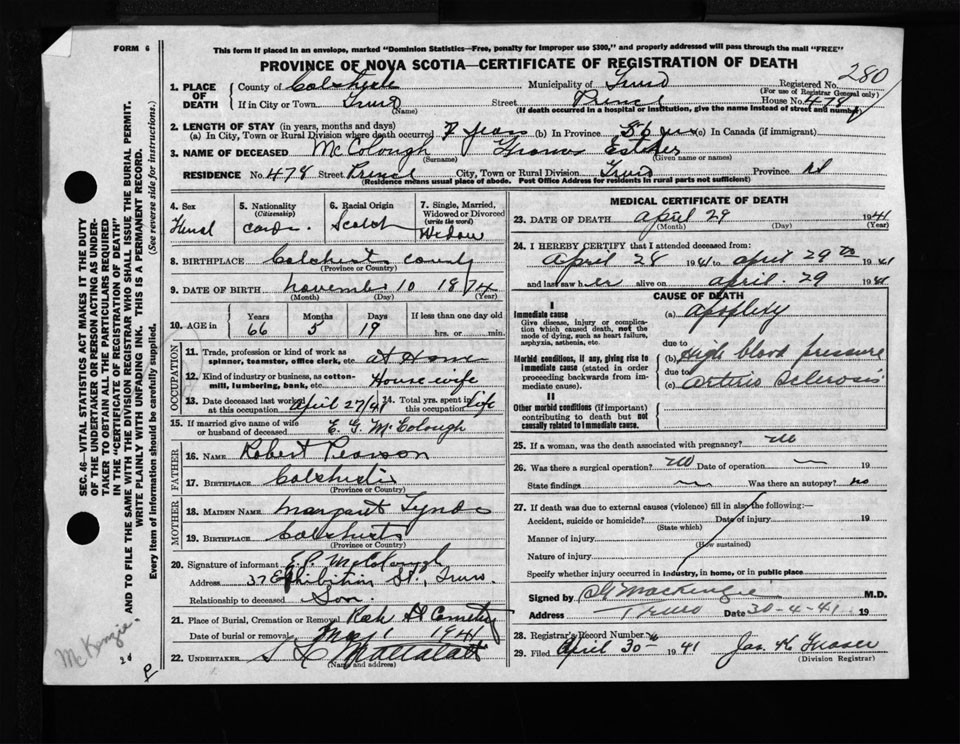 FORM 6
This form if placed in an envelope, marked "Dominion Statistics—Free, penalty for improper use $300," and properly addressed will pass through the mail "FREE"
PROVINCE OF NOVA SCOTIA—CERTIFICATE OF REGISTRATION OF DEATH
280
1. PLACE OF DEATH
County of Colchester Municipality of Truro Registered No.
(For use of Registrar General only)
If in City or Town Truro Street Prince House No. 478
(Name) (If death occurred in a hospital or institution, give the name instead of street and number)
2. LENGTH OF STAY (in years, months and days)
(a) In City, Town or Rural Division where death occurred 7 years (b) In Province (c) In Canada (if immigrant)
3. NAME OF DECEASED McColough Esther
(Surname) (Given name or names)
RESIDENCE No. 478 Street Prince City, Town or Rural Division Truro Province
(Residence means usual place of abode. Post Office Address for residents in rural parts not sufficient)
4. Sex
5. Nationality (Citizenship)
6. Racial Origin Scotch
7. Single, Married, Widowed or Divorced (write the word) Widow
8. BIRTHPLACE Colchester County
(Province or Country)
9. DATE OF BIRTH November 10 1874
(Month) (Day) (Year)
10. AGE in Years Months Days If less than one day old
66 5 19 hrs. or min.
OCCUPATION
11. Trade, profession or kind of work as spinner, teamster, office clerk, etc. at Home
12. Kind of industry or business, as cotton-mill, lumbering, bank, etc. Housewife
13. Date deceased last worked at this occupation April 27/41 14. Total yrs. spent in this occupation life
15. If married give name of wife or husband of deceased E. G. McColough
FATHER
16. Name Robert Pearson
17. Birthplace Colchester
(Province or Country)
MOTHER
18. Maiden Name Margaret Lynds
19. Birthplace Colchester
(Province or Country)
20. Signature of informant McColough
Address 37 Exhibition St., Truro
Relationship to deceased Son.
21. Place of Burial, Cremation or Removal Cemetry
Date of burial or removal May 1 1941
22. UNDERTAKER
(Name and address)
MEDICAL CERTIFICATE OF DEATH
23. DATE OF DEATH April 29 1941
(Month) (Day) (Year)
24. I HEREBY CERTIFY that I attended deceased from:
April 28 1941 to April 29th 1941
and last saw her alive on April 29 1941
CAUSE OF DEATH
I
Immediate cause
Give disease, injury or complication which caused death, not the mode of dying, such as heart failure, asphyxia, asthenia, etc.
(a) Apoplexy
due to
Morbid conditions, if any, giving rise to immediate cause (stated in order proceeding backwards from immediate cause).
(b) High blood pressure
due to
(c) Arterio Sclerosis
II
Other morbid conditions (if important) contributing to death but not causally related to immediate cause.
25. If a woman, was the death associated with pregnancy? no
26. Was there a surgical operation? no Date of operation 19
State findings Was there an autopsy? no
27. If death was due to external causes (violence) fill in also the following:—
Accident, suicide or homicide? Date of injury 19
(State which)
Manner of injury
(How sustained)
Nature of injury
Specify whether injury occurred in industry, in home, or in public place
Signed by MacKenzie M.D.
Address Truro Date 30-4-41 19
28. Registrar's Record Number
29. Filed April 30 1941 Jas. K. Fraser
(Division Registrar)
SEC. 46—VITAL STATISTICS ACT MAKES IT THE DUTY
OF THE UNDERTAKER OR PERSON ACTING AS UNDERTAKER TO OBTAIN ALL THE PARTICULARS REQUIRED
IN THE "CERTIFICATE OF REGISTRATION OF DEATH"
AND TO FILE THE SAME WITH THE DIVISION REGISTRAR WHO SHALL ISSUE THE BURIAL PERMIT.
WRITE PLAINLY WITH UNFADING INK. THIS IS A PERMANENT RECORD.
Every item of information should be carefully supplied. (See reverse side for instructions.)
McKenzie.